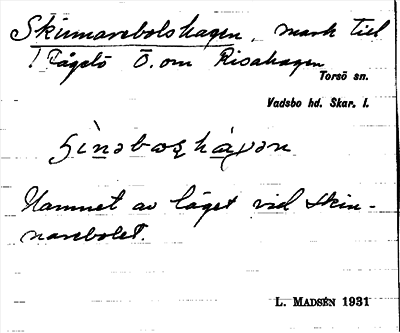 Skinnarebolshagen, mark till
! Fågelö Ö. om Risahagen
Torsö sn.
Vadsbo hd. Skar. l.
Namnet av läget vid Skin-
narebolet.
L. MADSÉN 1931